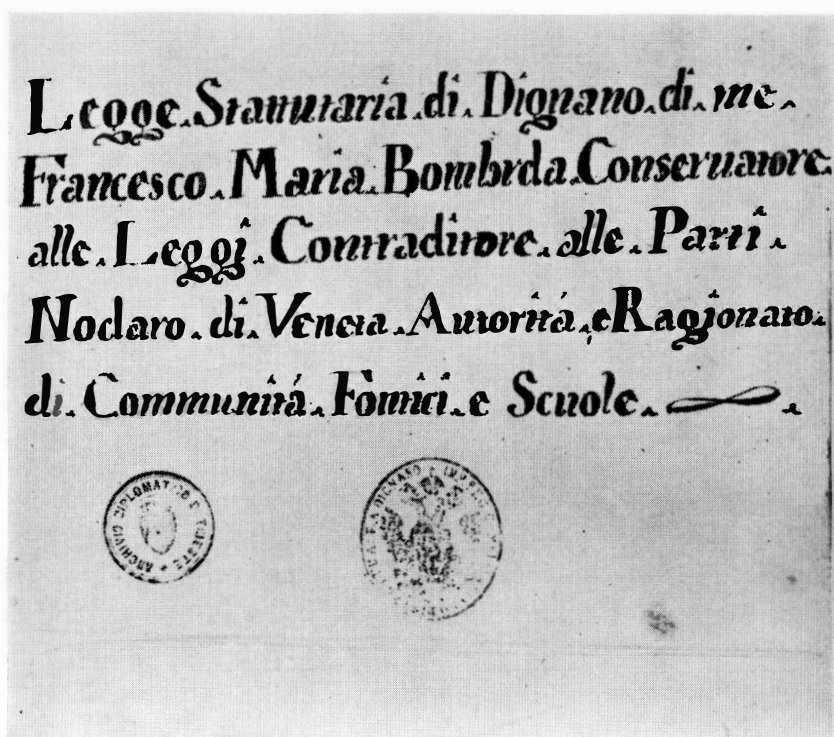 Legge. Stattutaria. di. Dignano. di. me.
Francesco. Maria. Bombrda. Conseruatore.
alle. Leggi. Contraditore. alle. Parti.
Nodaro. di. Veneta. Autoritá. e Ragionato.
di. Communitá. Fontici. e Scuole.
ARCHIVIO DIPLOMATICO D TRIESTE
DIGNANO